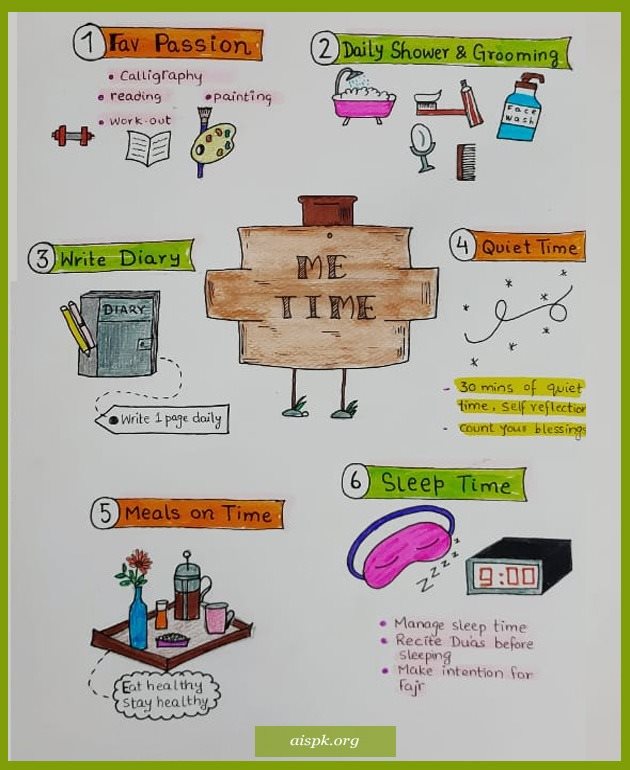 1 Fav Passion
• Calligraphy
• reading • painting
• work-out
2 Daily Shower & Grooming
Face
wash
3 Write Diary
DIARY
Write 1 page daily
ME
TIME
4 Quiet Time
- 30 mins of quiet
time, self reflection
- count your blessings
5 Meals on Time
Eat healthy
stay healthy
6 Sleep Time
zzzzz
9:00
• Manage sleep time
• Recite Duas before
sleeping
• Make intention for
Fajr
aispk.org